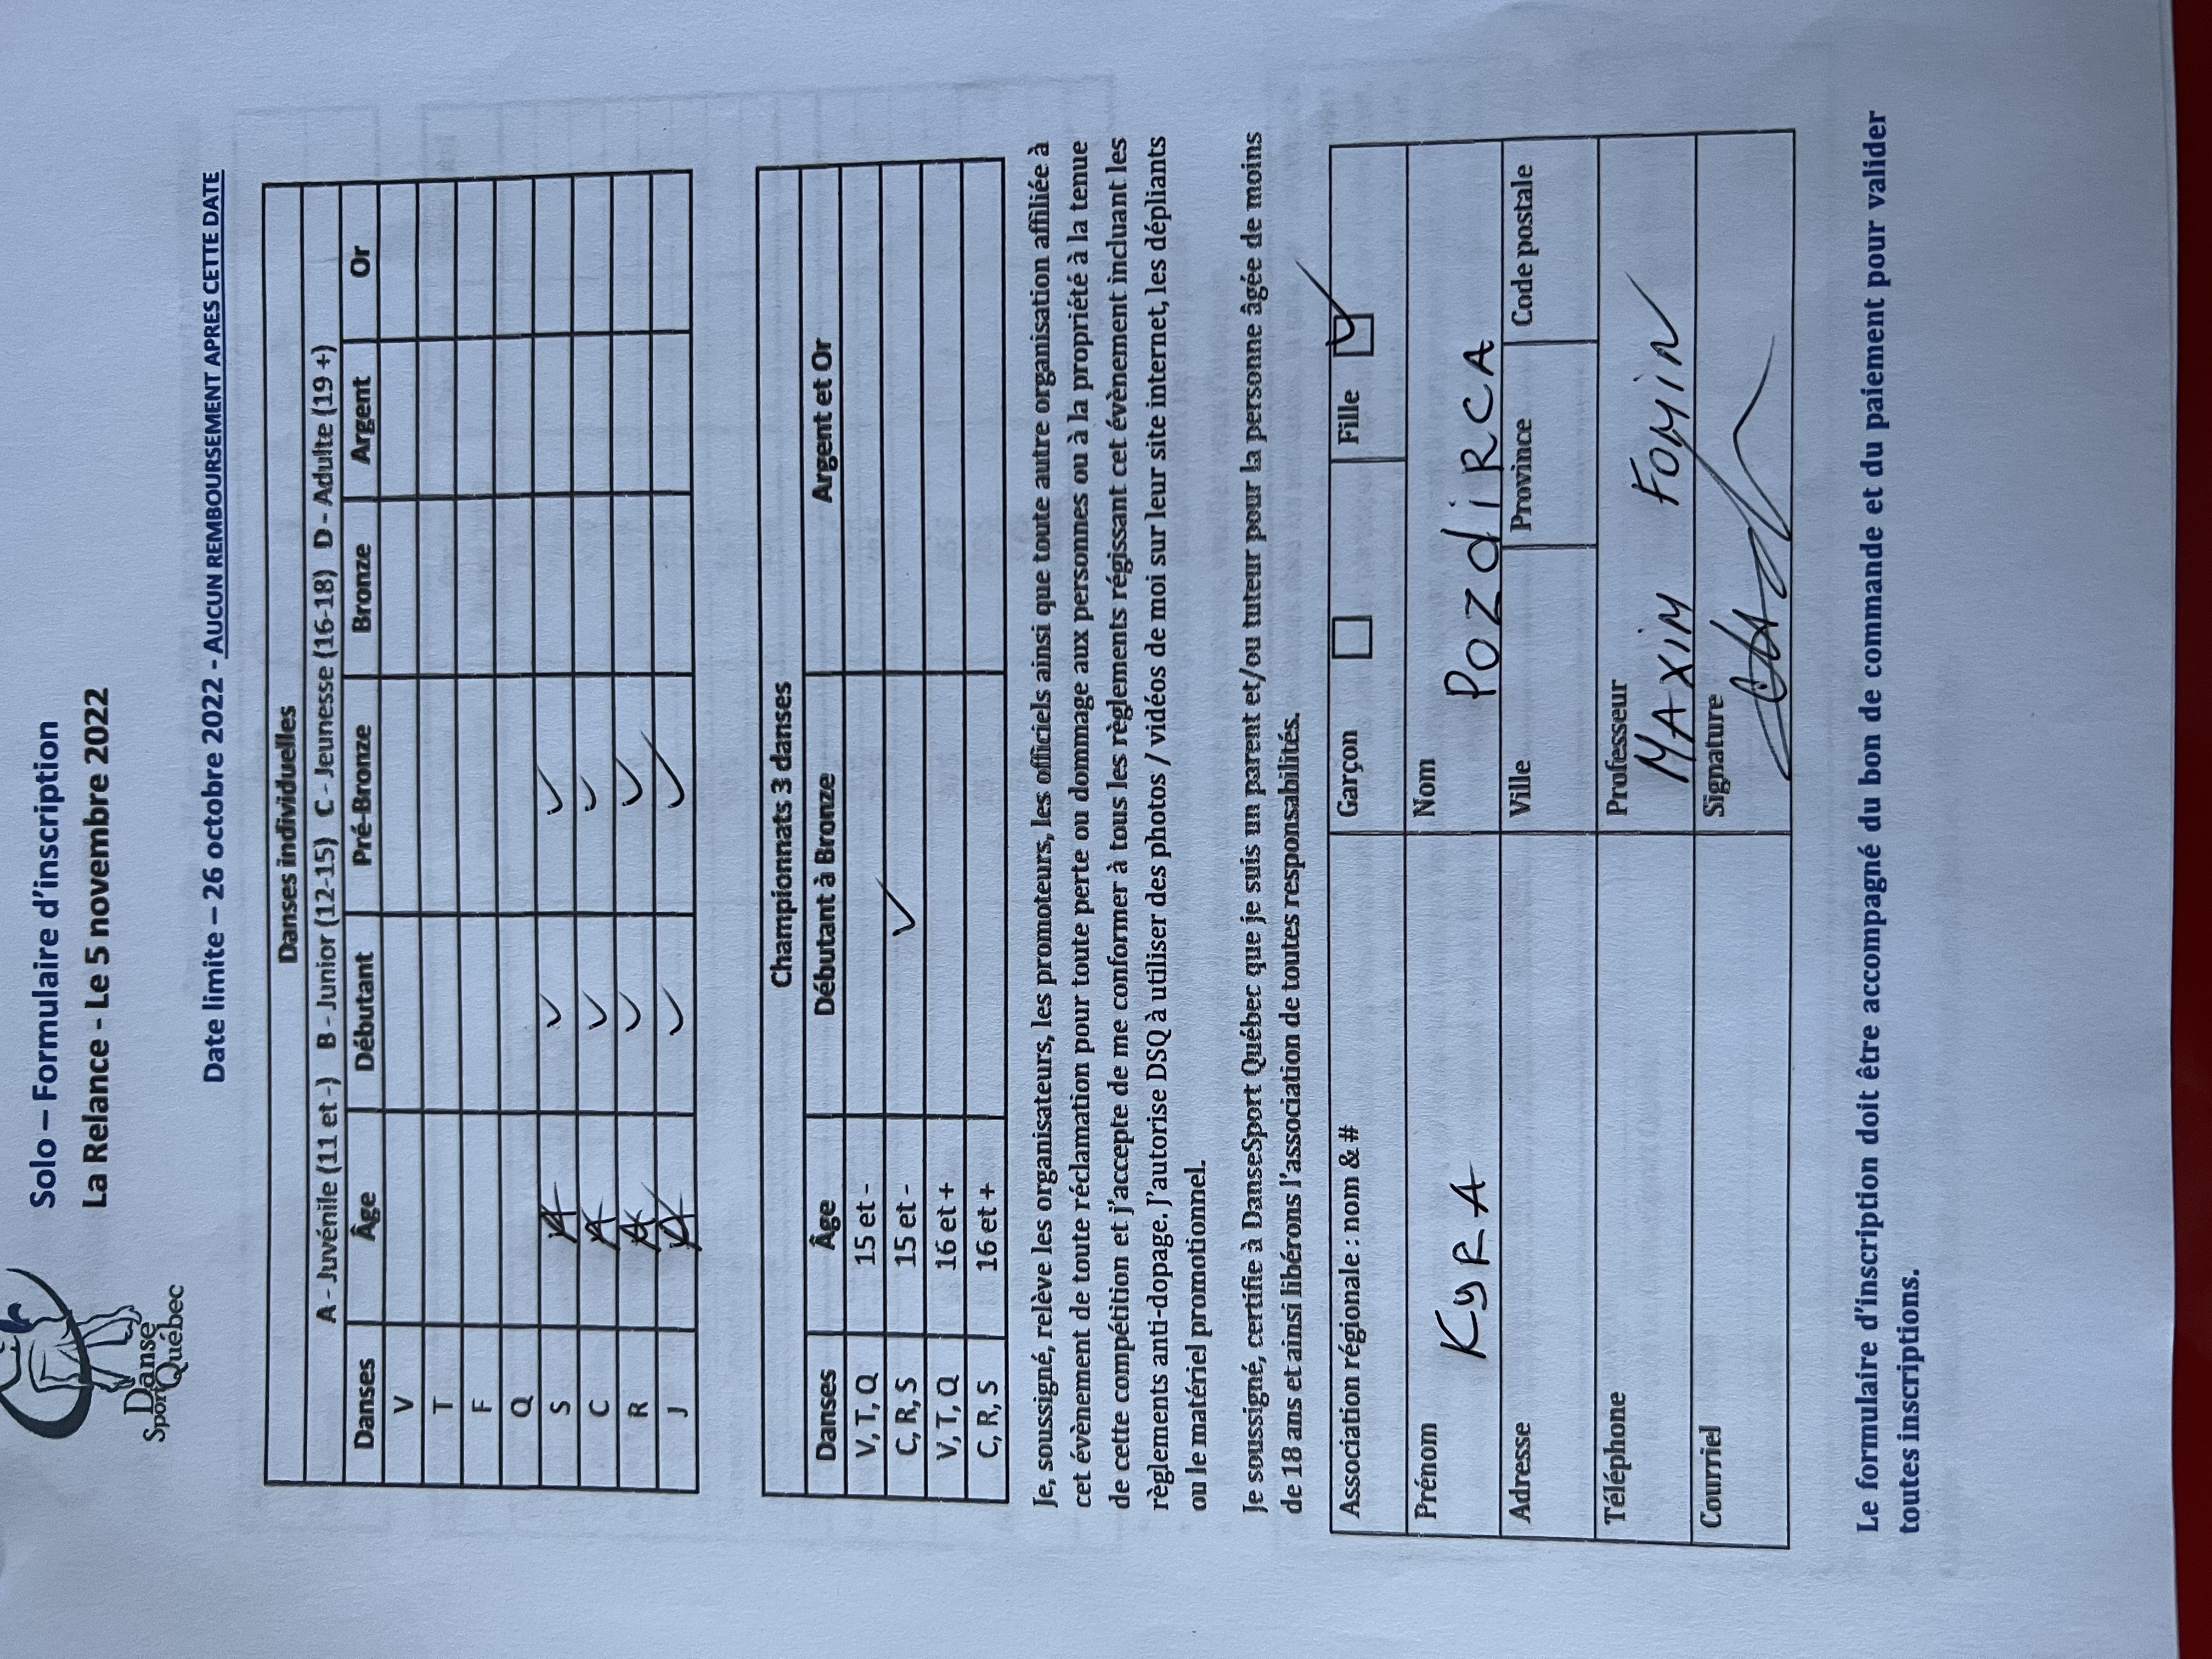 Danse
Sport
Québec
Solo – Formulaire d'inscription
La Relance - Le 5 novembre 2022
Date limite – 26 octobre 2022 - AUCUN REMBOURSEMENT APRES CETTE DATE
Danses individuelles
A - Juvénile (11 et -) B - Junior (12-15) C - Jeunesse (16-18) D - Adulte (19 +)
Danses Âge Débutant Pré-Bronze Bronze Argent Or
V
T
F
Q
S A ✓ ✓
C A ✓ ✓
R A ✓ ✓
J A ✓ ✓
Championnats 3 danses
Danses Âge Débutant à Bronze Argent et Or
V, T, Q 15 et -
C, R, S 15 et - ✓
V, T, Q 16 et +
C, R, S 16 et +
Je, soussigné, relève les organisateurs, les promoteurs, les officiels ainsi que toute autre organisation affiliée à
cet évènement de toute réclamation pour toute perte ou dommage aux personnes ou à la propriété à la tenue
de cette compétition et j'accepte de me conformer à tous les règlements régissant cet évènement incluant les
règlements anti-dopage. J'autorise DSQ à utiliser des photos / vidéos de moi sur leur site internet, les dépliants
ou le matériel promotionnel.
Je soussigné, certifie à DanseSport Québec que je suis un parent et/ou tuteur pour la personne âgée de moins
de 18 ans et ainsi libérons l'association de toutes responsabilités.
Association régionale : nom & # Garçon ☐ Fille ☑
Prénom Nom
KyRA POZdiRCA
Adresse Ville Province Code postale
Téléphone Professeur
MAXiM FOMiN
Courriel Signature
Le formulaire d'inscription doit être accompagné du bon de commande et du paiement pour valider
toutes inscriptions.